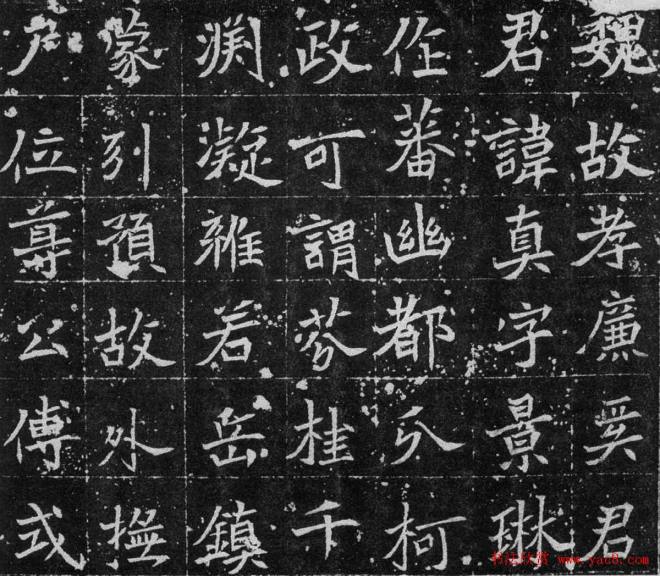 魏故孝廉奚君
君諱真字景琳
作蕃幽都分柯
政可謂芬桂千
渕凝雅若岳鎮
蒙列預故外撫
户位尊公傅或
书法欣赏 www.yac8.com